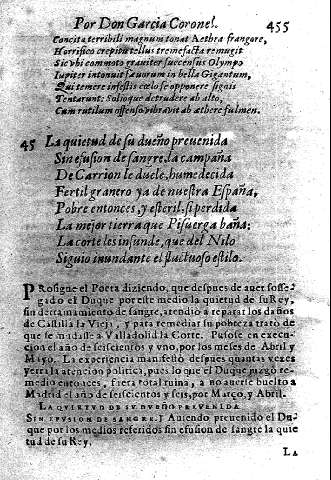 Por Don Garcia Coronel. 455
Concita terribili magnum tonat Aethra fragore,
Horrifico crepitu tellus tremefacta remugit
Sic vbi commoto grauiter succensus Olympo
Iupiter intonuit sæuorum in bella Gigantum,
Qui temere infestis cœlo se opponere signis
Tentarunt: Solioque detrudere ab alto,
Cum rutilum offenso vibravit ab æthere fulmen.
45 La quietud de su dueño preuenida
Sin efusion de sangre, la campaña
De Carrion le duele, humedecida
Fertil granero ya de nuestra España,
Pobre entonces, y esteril, si perdida
La mejor tierra que Pisuerga baña:
La corte les infunde, que del Nilo
Siguio inundante el fluctuoso estilo.
PRosigue el Poeta diziendo, que despues de auer sosse-
gado el Duque por este medio la quietud de su Rey,
sin derramamiento de sangre, atendio a reparar los daños
de Castilla la Vieja, y para remediar su pobreza trató de
que se mudasse a Valladolid la Corte. Pusose en execu-
cion el año de seiscientos y vno, por los meses de Abril y
Mayo. La experiencia manifestò despues quantas vezes
yerra la atencion politica, pues lo que el Duque juzgò re-
medio entonces, fuera total ruina, a no auerse buelto a
Madrid el año de seiscientos y seis, por Março, y Abril.
LA QVIETVD DE SV DVEÑO PREVENIDA
SIN EFVSION DE SANGRE.] Auiendo preuenido el Du-
que por los medios referidos sin efusion de sangre la quie
tud de su Rey.
LA